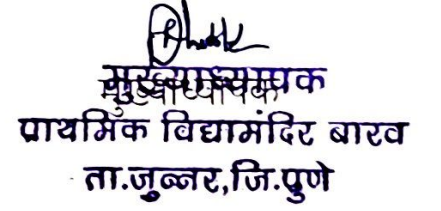 मुख्याध्यापक
प्राथमिक विद्यामंदिर बारव
ता.जुन्नर,जि.पुणे